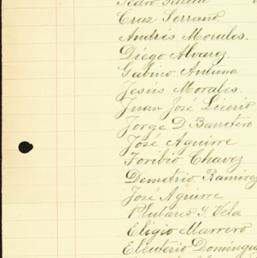 Pedro Garcia
Cruz Serrano.
Andrés Morales.
Diego Alvarez.
Gabino Antuna
Jesús Morales
Juan José Licerio
Jorge D. Barretero
José Aguirre
Toribio Chavez
Demetrio Ramirez
José Aguirre
Plutarco S. Vela
Eligio Marrero
Eleuterio Domingue